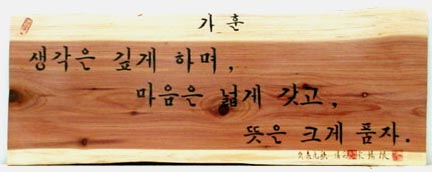 가훈
생각은 깊게 하며,
마음은 넓게 갖고,
뜻은 크게 품자.